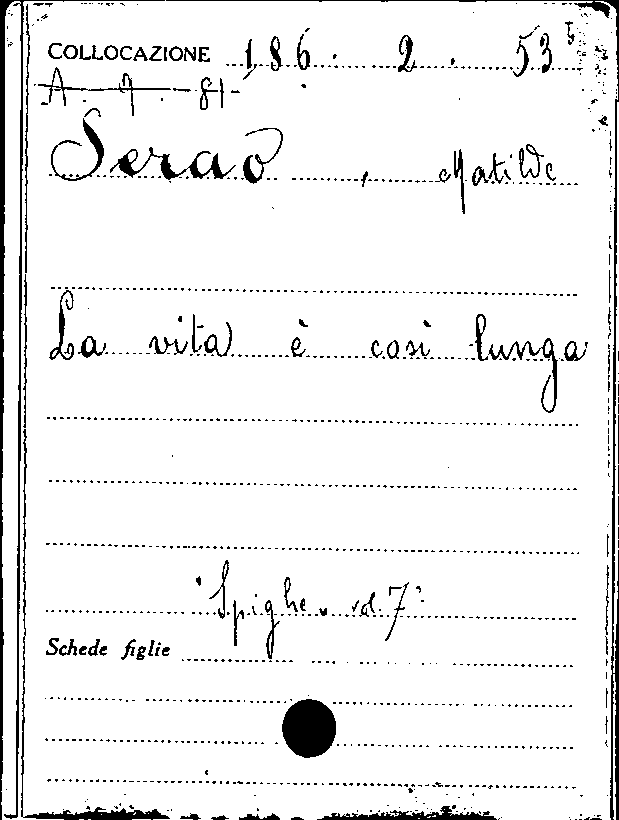 COLLOCAZIONE 186. 2. 53⁵
A. 9. 81
Serao, Matilde
La vita è così lunga
"Spighe" vol. 7°
Schede figlie